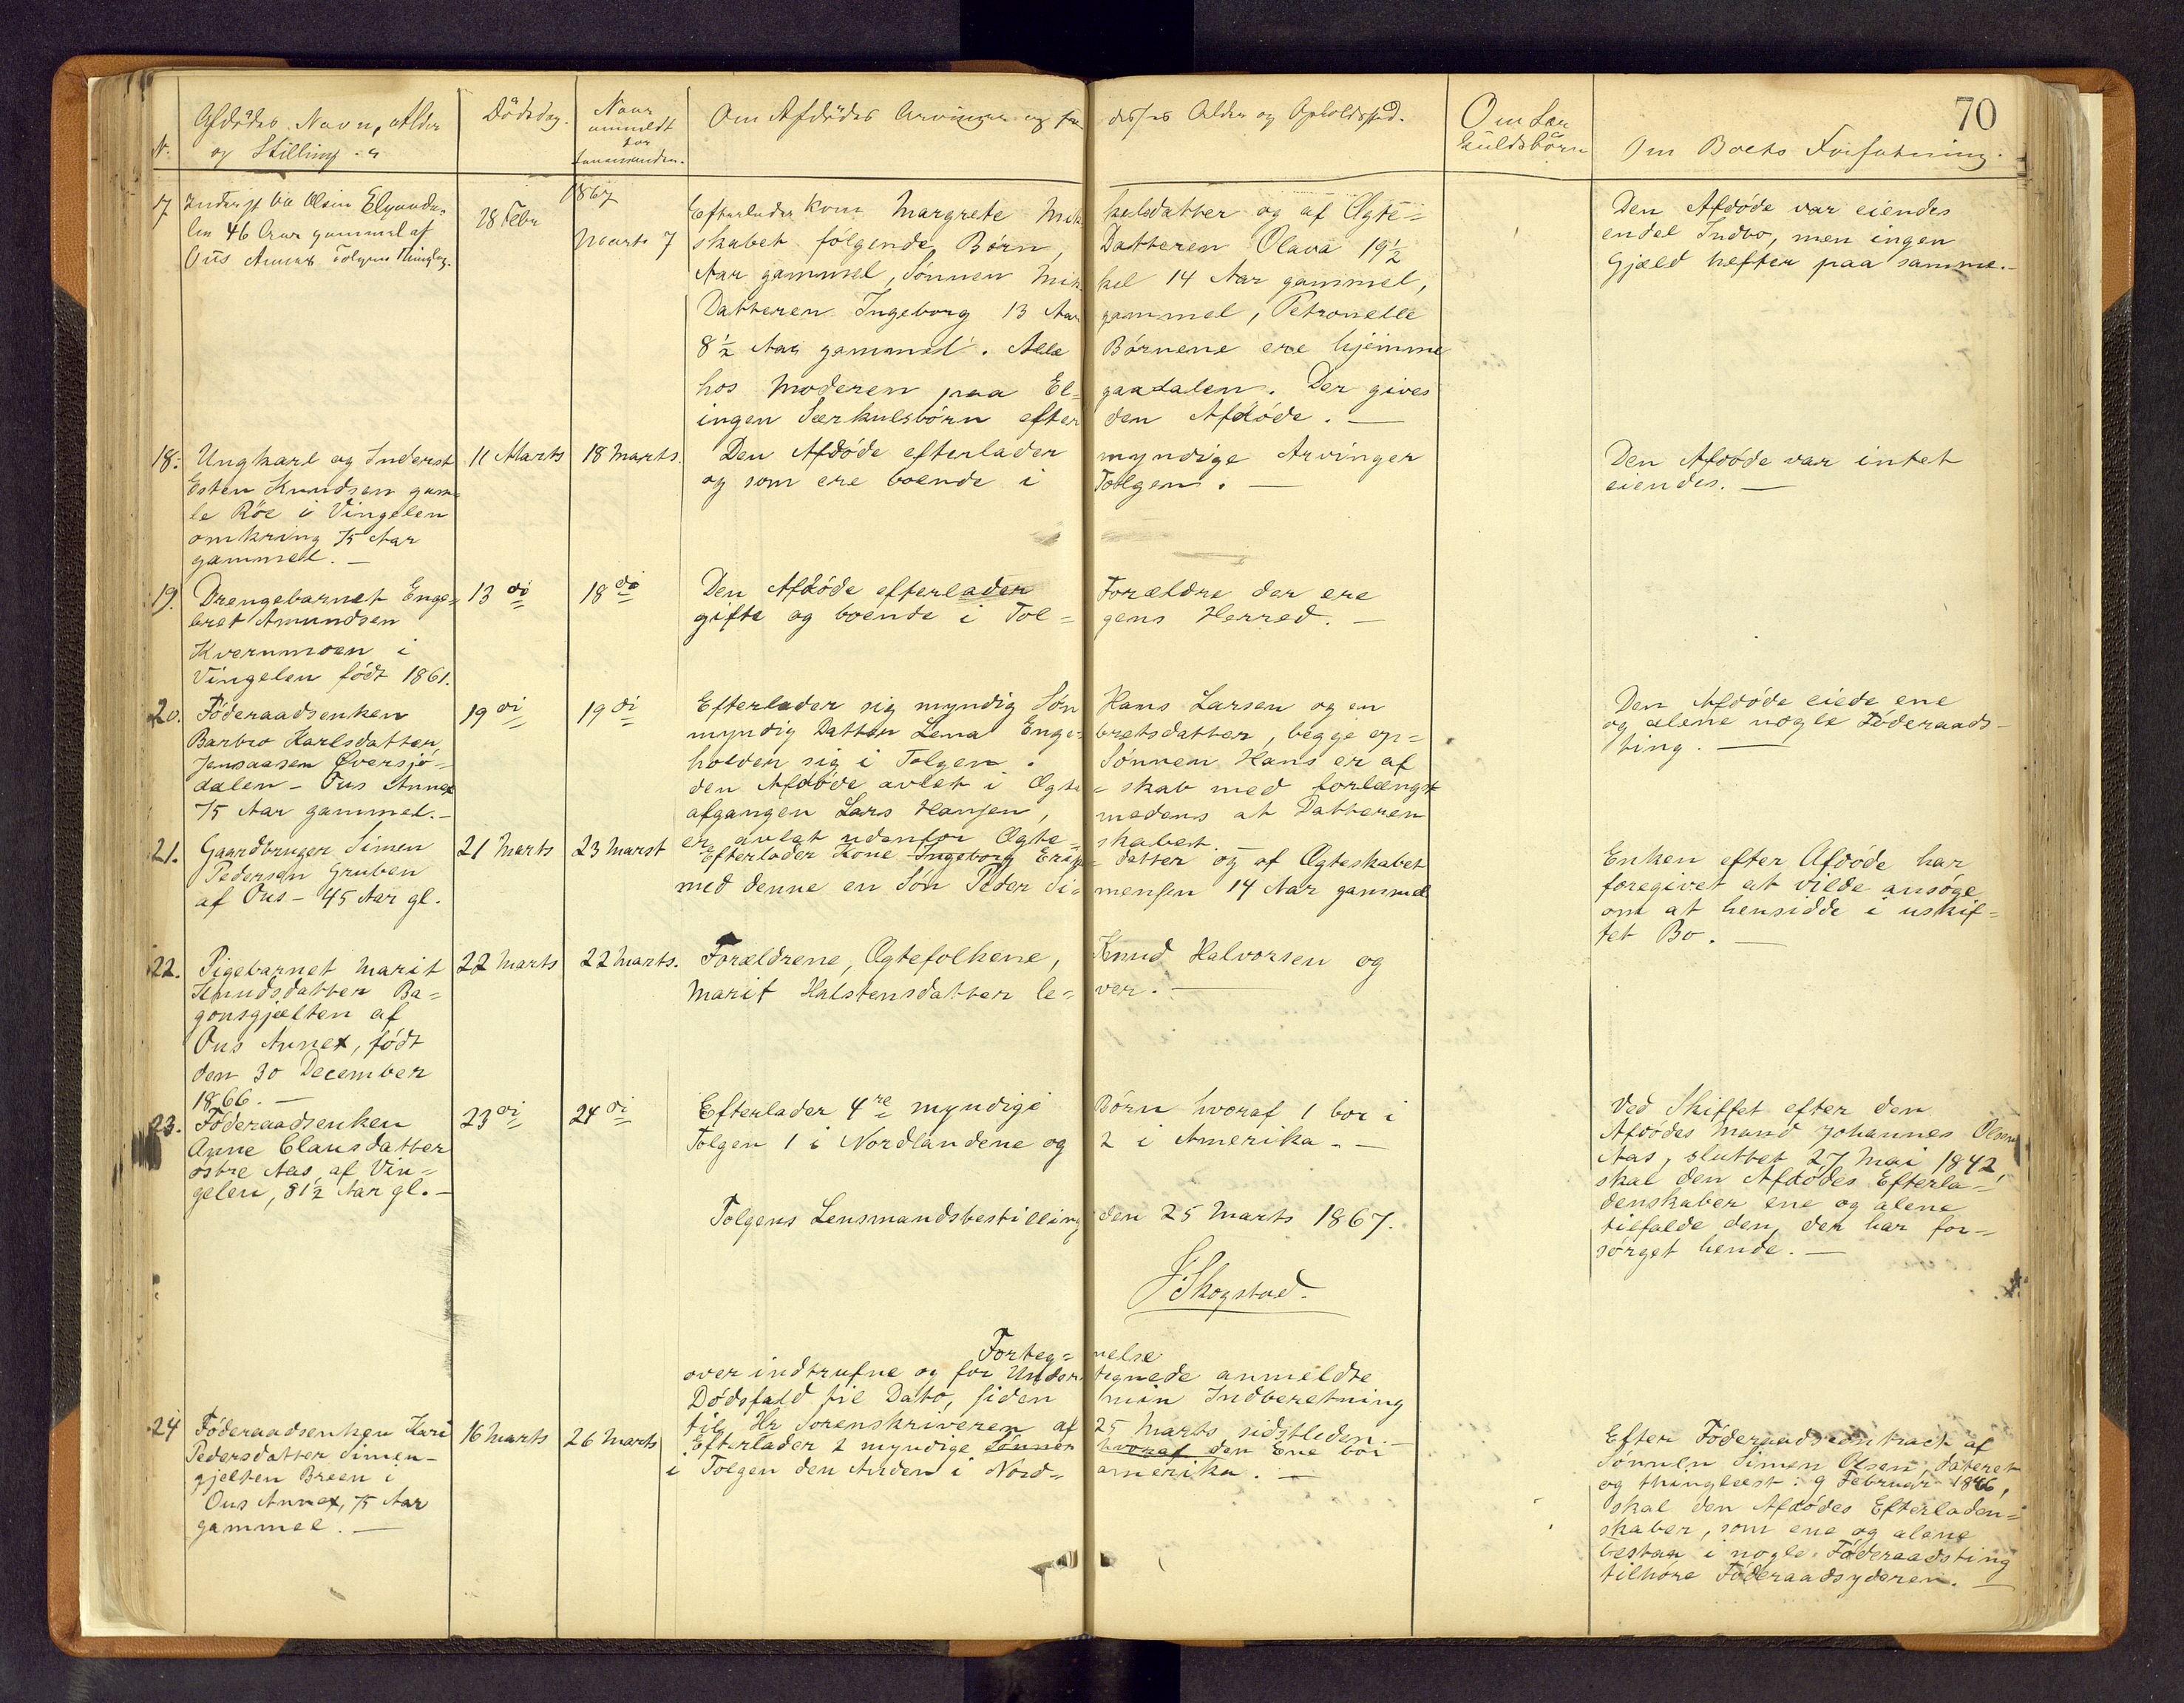 70
N.
Afdødes Navn, Alder
og Stilling.
Dødsdag.
Naar
anmeldt
for
Lensmanden.
Om Afdødes Arvinger og
disses Alder og Opholdssted.
Om Sær
kuldsbørn
Om Boets Forfatning.
17
Inderst Ole Olsen Elgaada-
len 46 Aar gammel af
Ous Annex Tolgens Thinglag.
28 Febr
1867
Marts 7
Efterlader Kone Margrete Mik kelsdatter og af Ægte=
skabet følgende Børn, Datteren Olava 19½
Aar gammel, Sønnen Mik kel 14 Aar gammel,
Datteren Ingeborg 13 Aar gammel, Petronelle
8½ Aar gammel. Alle Børnene ere hjemme
hos Moderen paa El= gaadalen. Der gives
ingen Særkulsbørn efter den Afdøde. —
Den Afdøde var eiendes
endel Indbo, men ingen
Gjæld hefter paa samme. —
18.
Ungkarl og Inderst
Esten Knudsen gam=
le Røe i Vingelen
omkring 75 Aar
gammel. —
11 Marts
18 Marts.
Den Afdøde efterlader myndige Arvinger
og som ere boende i Tolgen. —
Den Afdøde var intet
eiendes. —
19.
Drengebarnet Enge=
bret Amundsen
Kvernmoen i
Vingelen født 1861.
13 di
18 do
Den Afdøde efterlader Forældre der ere
gifte og boende i Tol= gens Herred. —
20.
Föderaadsenken
Barbro Karlsdatter
Jensaasen Øversjö=
dalen – Ous Annex
75 Aar gammel. —
19 di
19 di
Efterlader sig myndig Søn Hans Larsen og en
myndig Datter Lena Enge= bretsdatter, begge op=
holden sig i Tolgen. Sønnen Hans er af
den Afdøde avlet i Ægte = skab med forlængst
afgangen Lars Hansen, medens at Datteren
er avlet udenfor Ægte= skabet.
Den Afdøde eiede ene
og alene nogle Föderaads-
ting. —
21.
Gaardbruger Simen
Pedersen Gruben
af Ous – 45 Aar gl.
21 Marts
23 Marst
Efterlader Kone Ingeborg Eriks = datter og af Ægteskabet
med denne en Søn Peder Si= mensen 14 Aar gammel
Enken efter Afdøde har
foregivet at vilde ansøge
om at hensidde i uskif=
tet Bo. —
22.
Pigebarnet Marit
Knudsdatter Ba=
gonsgjelten af
Ous Annex, født
den 30 December
1866. —
22 Marts
22 Marts.
Forældrene, Ægtefolkene, Knud Halvorsen og
Marit Halstensdatter le= ver. —
23.
Föderaadsenken
Anne Clausdatter
østre Aas af Vin=
gelen, 81½ Aar gl. —
23 di
24 di
Efterlader 4re myndige Børn hvoraf 1 bor i
Tolgen 1 i Nordlandene og 2 i Amerika. —
Ved Skiftet efter den
Afdødes Mand Johannes Olsen
Aas, sluttet 27 Mai 1842,
skal den Afdødes Efterla=
denskaber ene og alene
tilfalde den, der har for=
sørget hende. —
Tolgens Lensmandsbestilling den 25 Marts 1867.
J. Skogstad.
Forteg= nelse
over indtrufne og for Under tegnede anmeldte
Dødsfald til Dato, siden min Indberetning
til Hr Sorenskriveren af 25 Marts sidstleden. —
24
Föderaadsenken Kari
Pedersdatter Simen-
gjelten Breen i
Ous Annex, 75 Aar
gammel. —
16 Marts
26 Marts
Efterlader 2 myndige Sønner hvoraf den Ene bor
i Tolgen den Anden i Nord= amerika. —
Efter Föderaadscontract af
Sønnen Simen Olsen, dateret
og thinglæst 9 Februar 1866,
skal den Afdødes Efterladen=
skaber, som ene og alene
bestaa i nogle Föderaadsting
tilhøre Föderaadsyderen. —